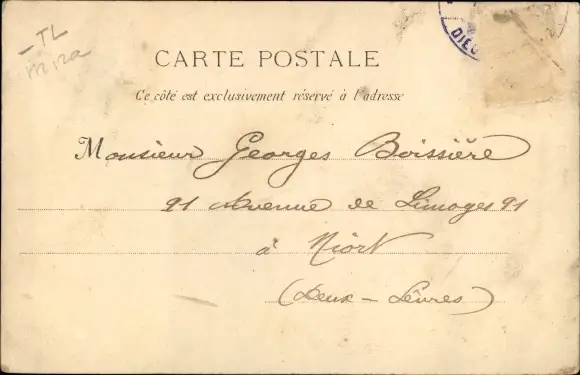 TL
CARTE POSTALE
Ce côté est exclusivement réservé à l'adresse
Monsieur Georges Boissière
91 Avenue de Limoges 91
à Niort
(Deux-Sèvres)
DIEU